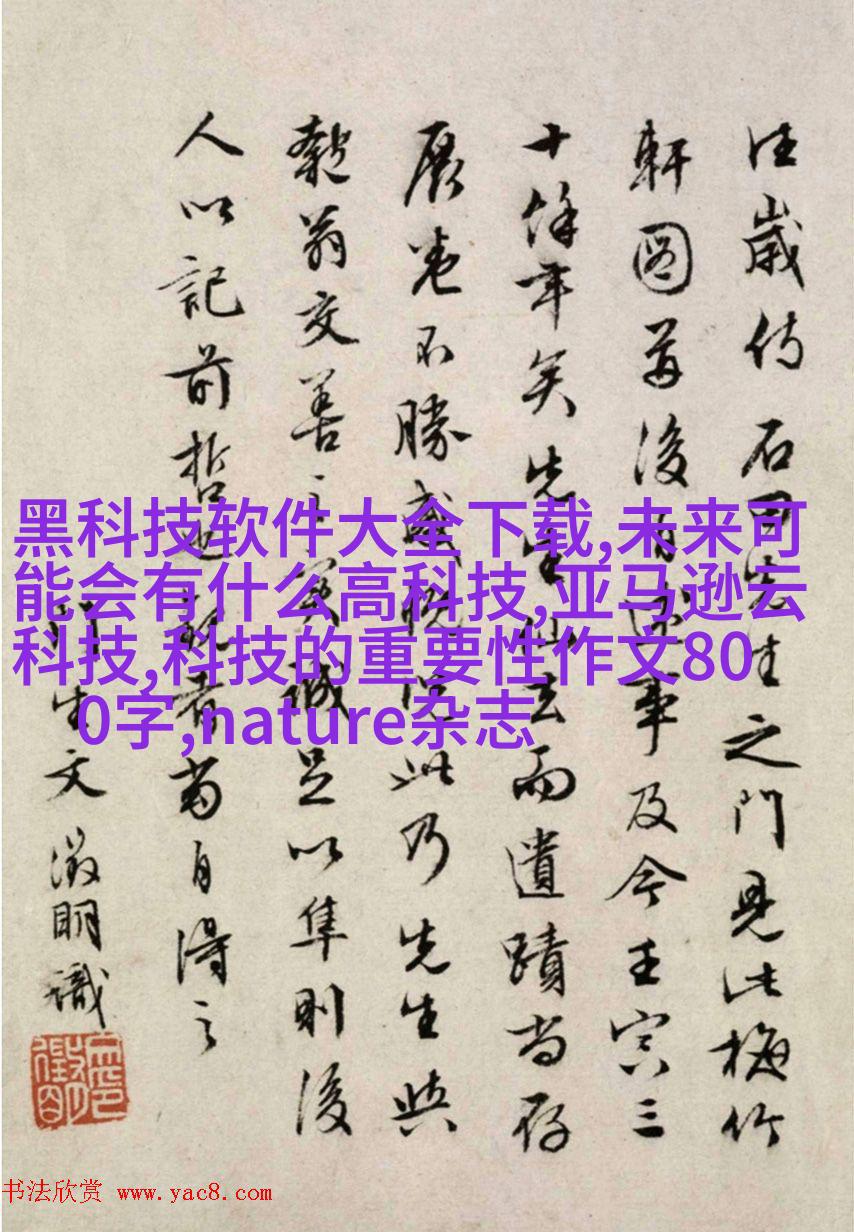 往歲侍石田先生之門見此梅竹
軒圖後事及今壬寅三
十餘年矣先生仙去而遺蹟尚存
展卷不勝感慨況此乃先生與
翁交善之實誠足以垂則後
人以記前哲也觀者當自得之
門生文徵明識
黑科技软件大全下载,未来可
能会有什么高科技,亚马逊云
科技,科技的重要性作文80
0字,nature杂志
书法欣赏 www.yac8.com